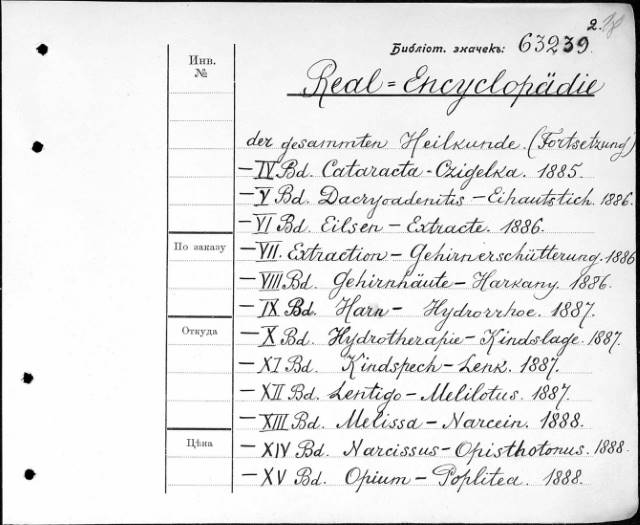 2.
Библіот. значекъ: 63239.
Инв.
№
Real=Encyclopädie
der gesammten Heilkunde. (Fortsetzung)
— IV Bd. Cataracta - Czigelka. 1885.
— V Bd. Dacryoadenitis — Eihautstich. 1886.
— VI Bd. Eilsen — Extracte. 1886.
По заказу
— VII. Extraction — Gehirnerschütterung. 1886
— VIII Bd. Gehirnhäute — Harkany. 1886.
— IX Bd. Harn — Hydrorrhoe. 1887.
Откуда
— X Bd. Hydrotherapie — Kindslage. 1887.
— XI Bd. Kindspech — Lenk. 1887.
— XII Bd. Lentigo — Melilotus. 1887.
— XIII Bd. Melissa — Narcein. 1888.
Цѣна
— XIV Bd. Narcissus — Opisthotonus. 1888.
— XV Bd. Opium — Poplitea. 1888.